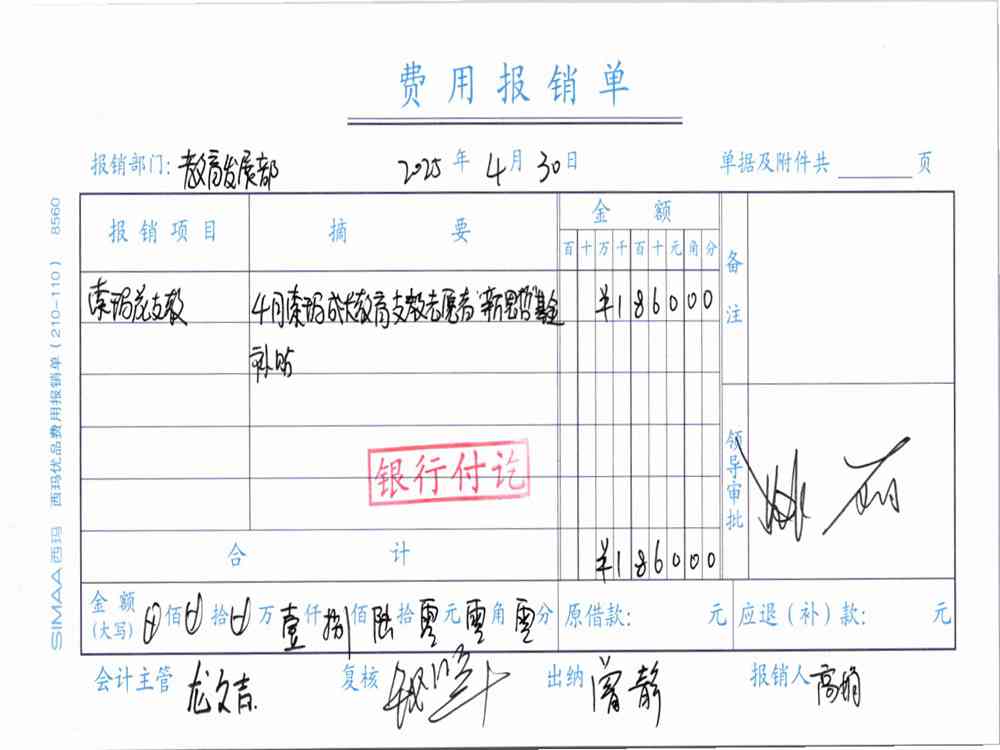 费用报销单
报销部门: 教育发展部 2025 年 4 月 30 日 单据及附件共 页
报销项目 摘要 金额 备注
百 十 万 千 百 十 元 角 分
索玛花支教 4月索玛 教育支教志愿者"新思哲"基金 ¥186000
补贴
银行付讫
领导审批
合计 ¥186000
金额 佰 拾 万 壹 仟 捌 佰 陆 拾 零 元 零 角 零 分 原借款: 元 应退(补)款: 元
(大写)
会计主管 龙文吉 复核 出纳 曾静 报销人 高娟
SIMAA 西玛 西玛优品费用报销单(210-110) 8560